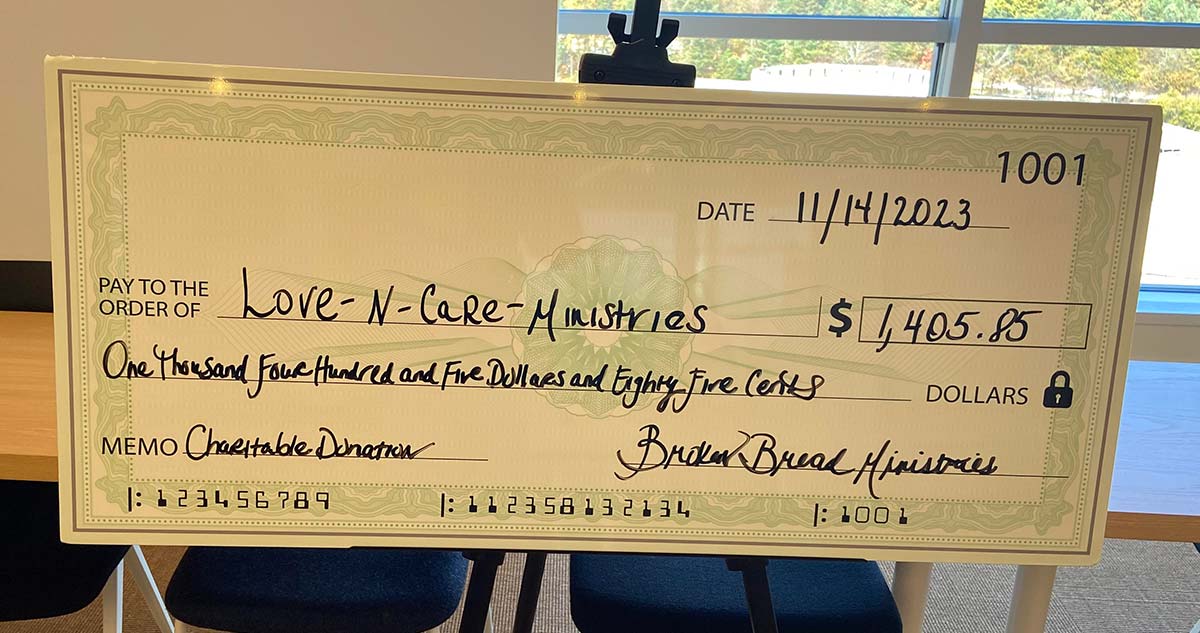 1001
DATE 11/14/2023
PAY TO THE
ORDER OF Love-N-Care-Ministries $ 1,405.85
One Thousand Four Hundred and Five Dollars and Eighty Five Cents DOLLARS
MEMO Charitable Donation Broken Bread Ministries
|: 123456789 |: 112358132134 |: 1001